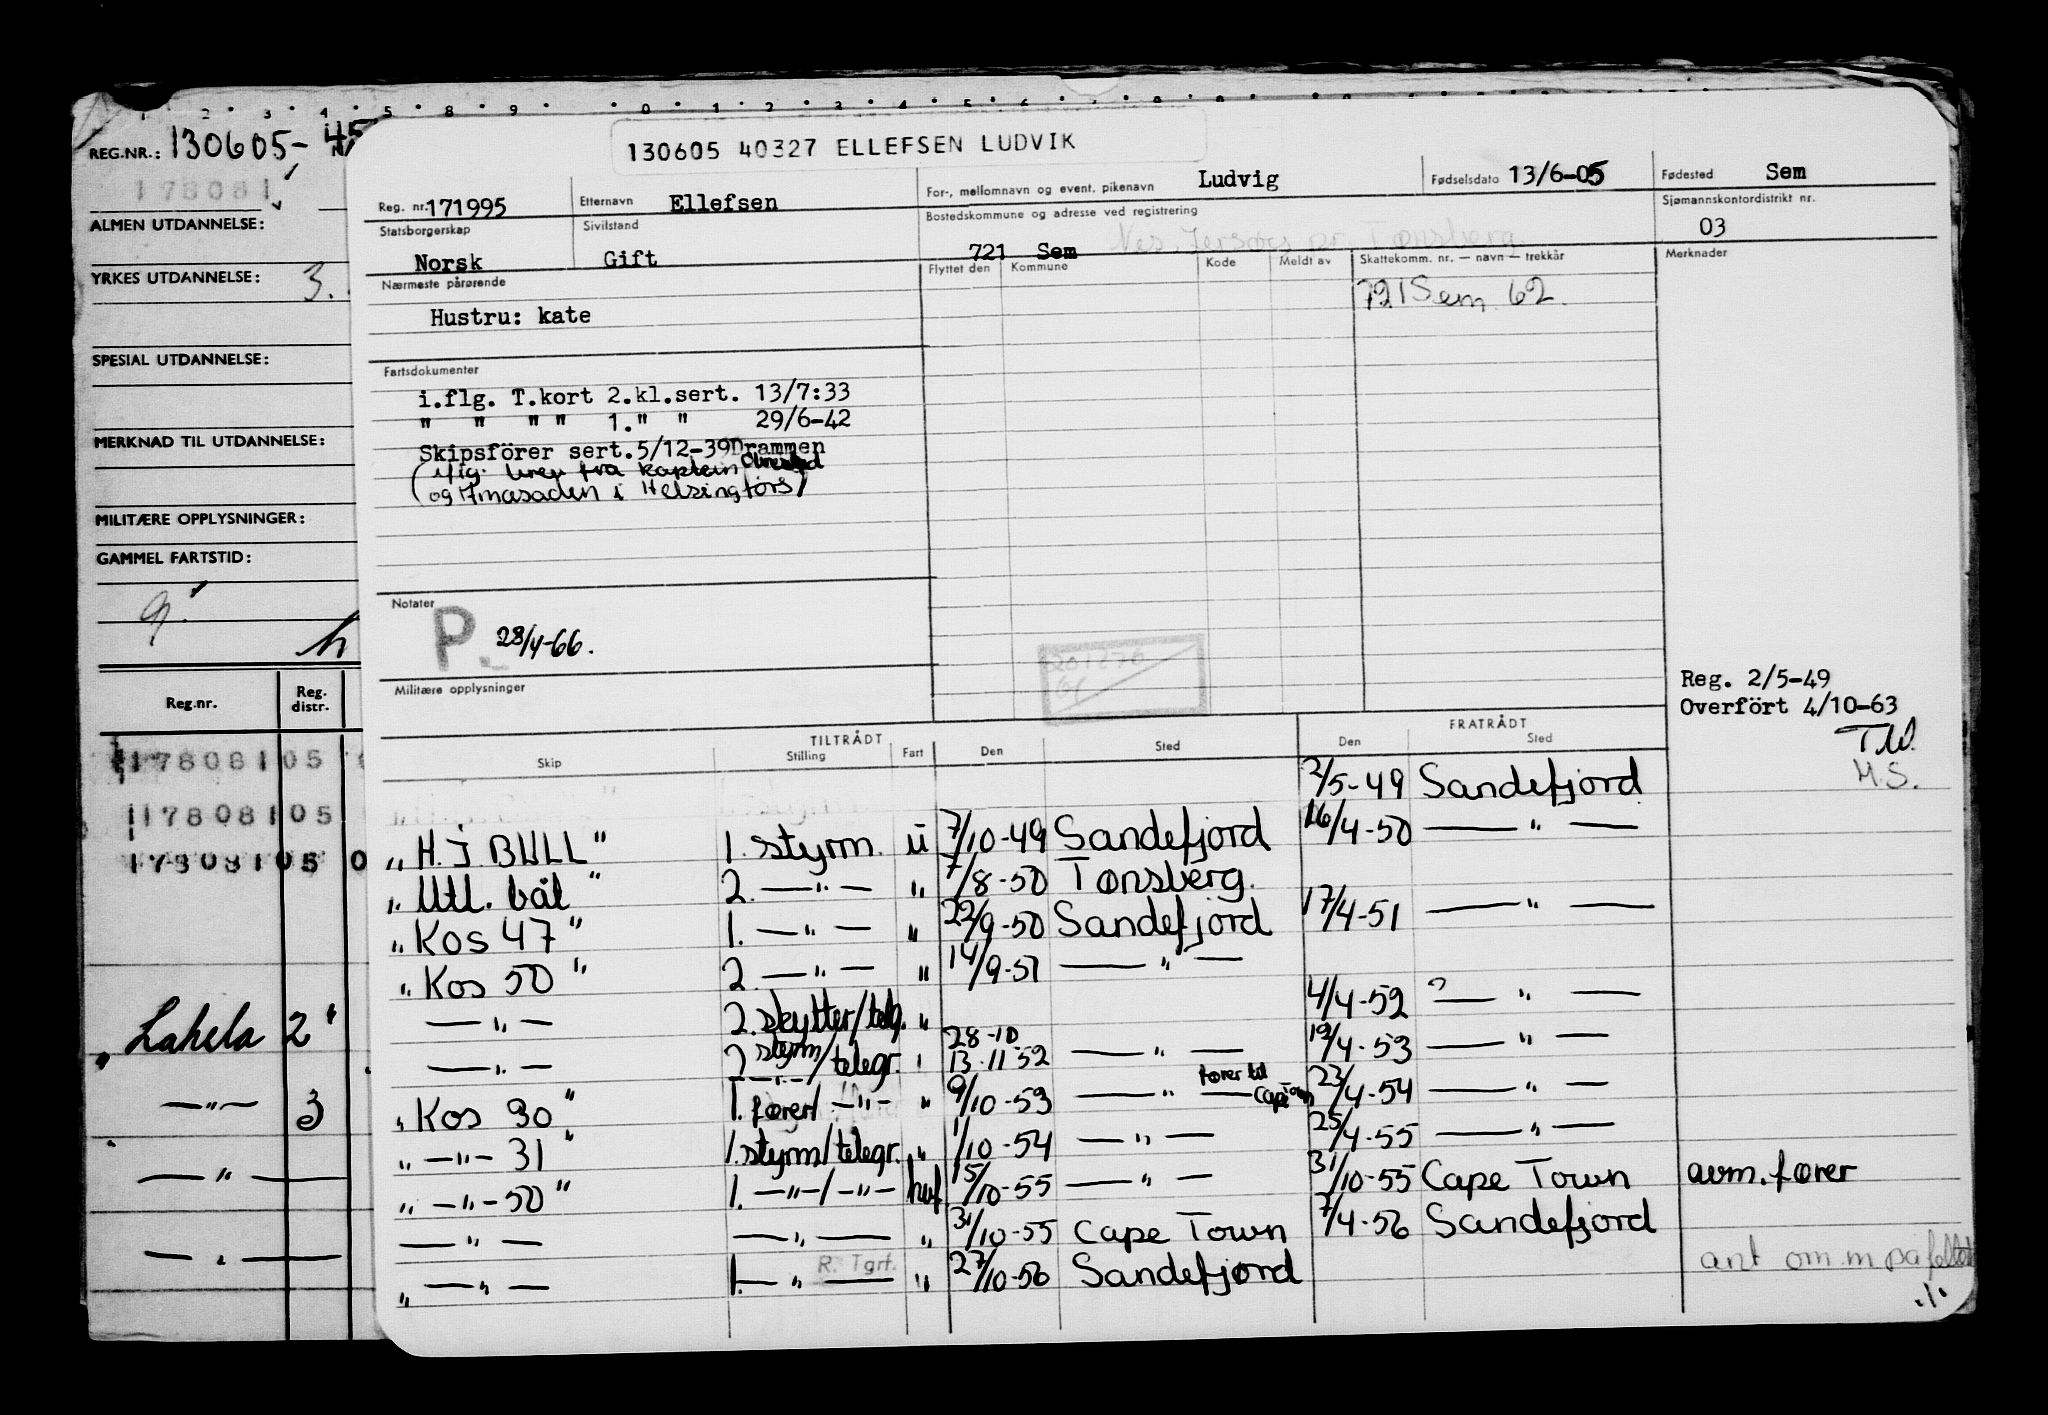 1 2 3 4 5 8 9 0 1 2 3 4 5 6 7 8 9
REG.NR.: 130605-45
178081
ALMEN UTDANNELSE:
YRKES UTDANNELSE: 3.
SPESIAL UTDANNELSE:
MERKNAD TIL UTDANNELSE:
MILITÆRE OPPLYSNINGER:
GAMMEL FARTSTID:
Reg.nr. Reg. distr.
17808105
17808105
17808105 0
" Lahela 2"
—"— 3
—"—
—"—
130605 40327 ELLEFSEN LUDVIK
Reg. nr. 171995 Etternavn Ellefsen For-, mellomnavn og event. pikenavn Ludvig Fødselsdato 13/6-05 Fødested Sem
Statsborgerskap Norsk Sivilstand Gift Bostedskommune og adresse ved registrering 721 Sem Nes, Jersøy pr. Tønsberg Sjømannskontordistrikt nr. 03
Nærmeste pårørende Flyttet den Kommune Kode Meldt av Skattekomm. nr. — navn — trekkår Merknader
721 Sem 62.
Hustru: kate
Fartsdokumenter
i.flg. T.kort 2.kl.sert. 13/7:33
" " " " 1." " 29/6-42
Skipsförer sert.5/12-39Drammen
(iflg. brev fra kaptein
og Amasaden i Helsingfors)
Notater
P. 28/4-66.
Militære opplysninger
Reg. 2/5-49
Overfört 4/10-63
T.W.
H.S.
TILTRÅDT FRATRÅDT
Skip Stilling Fart Den Sted Den Sted
2/5-49 Sandefjord
"H.J BULL" 1. styrm. u 7/10-49 Sandefjord 16/4-50 —"—
" Utl. båt " 2. —"— " 7/8-50 Tønsberg.
" Kos 47 " 1. —"— " 22/9-50 Sandefjord 17/4-51 —"—
" Kos 50 " 2. —"— " 14/9-51 —"—
—"— 2. skytter/telg. " 4/4-52 ? —"—
—"— 2 styrm/telegr. " 28-10 13-11-52 —"— 19/4-53 —"—
" Kos 30 " 1. fører/ —"— " 9/10-53 —"— fører til Cape Town 23/4-54 —"—
" —"— 31 " 1. styrm/telegr. " 1/10-54 —"— 25/4-55 —"—
" —"— 50 " 1. —"—/—"— hvf 15/10-55 —"— 31/10-55 Cape Town avm. fører
—"— —"— " 31/10-55 Cape Town 7/4-56 Sandefjord
" —"— 1. —"— R. Tgrf. " 27/10-56 Sandefjord ant om.m på feltet
./.